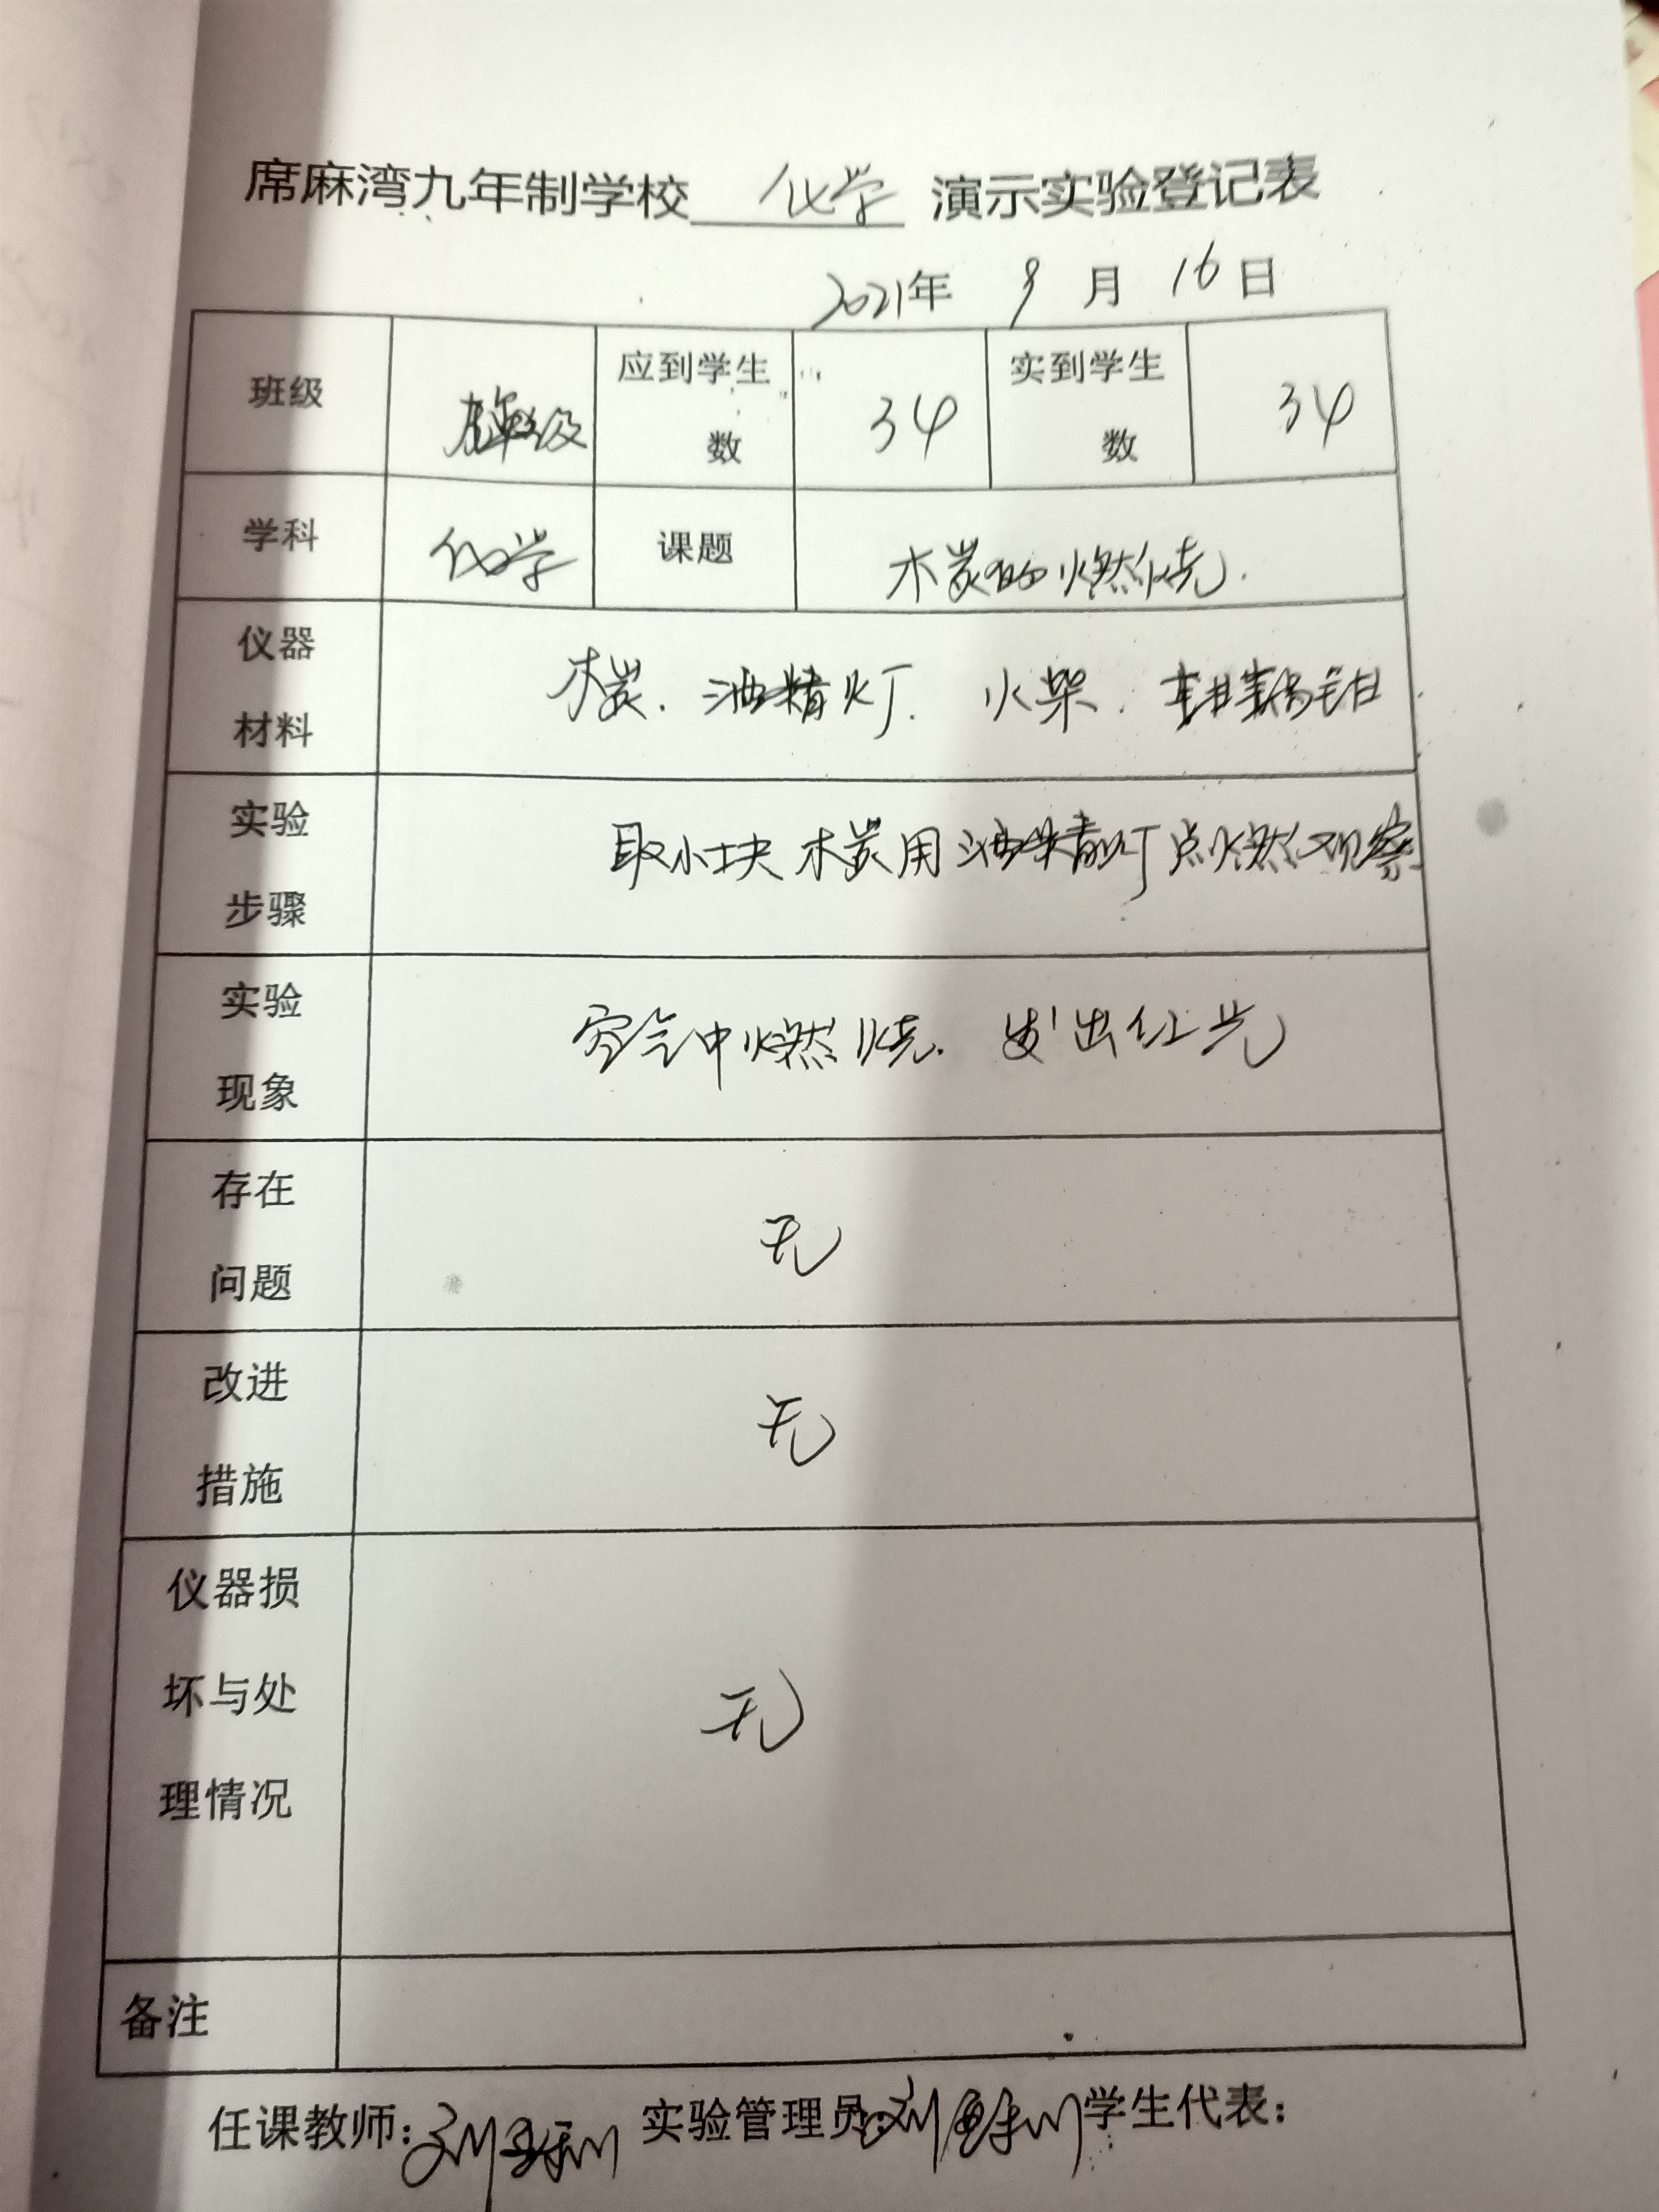 席麻湾九年制学校 化学 演示实验登记表
2021年 9 月 16 日
班级 九年级 应到学生数 34 实到学生数 34
学科 化学 课题 木炭的燃烧.
仪器材料 木炭. 酒精灯. 火柴. 坩埚钳.
实验步骤 取小块木炭用酒精灯点燃观察
实验现象 空气中燃烧. 发出红光
存在问题 无
改进措施 无
仪器损坏与处理情况 无
备注
任课教师: 实验管理员: 学生代表: